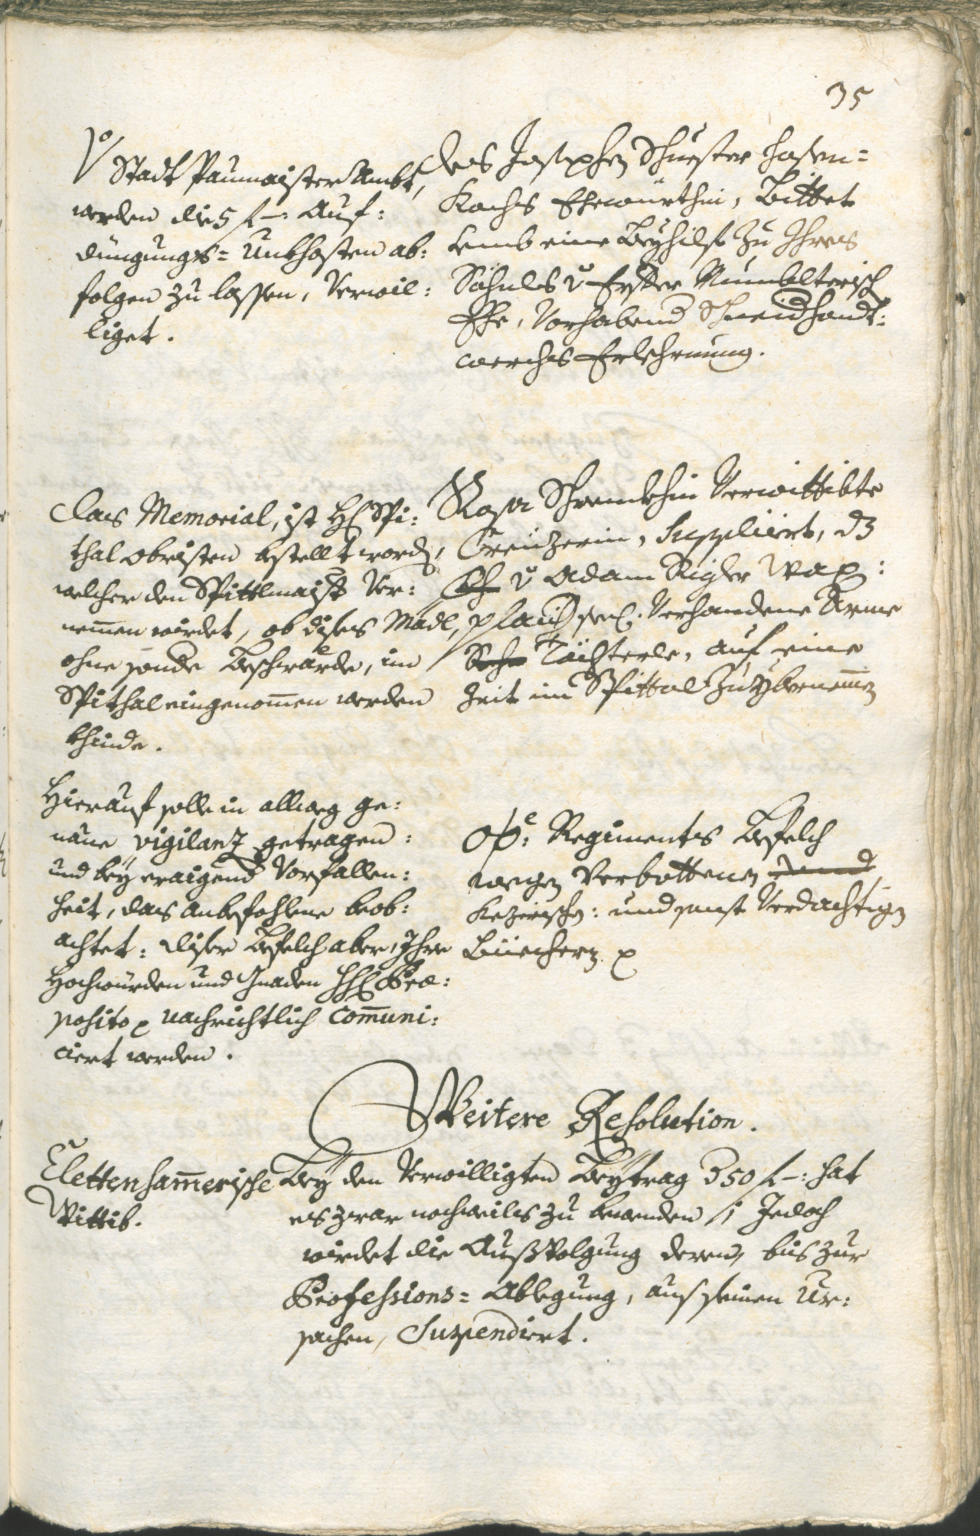 35
Vo Stadt Paumaister Ambt,
werden die 5 f –: Auf:
düngungs= Unkhosten ab:
folgen zu lassen, Verwil:
liget.
Des Josephen Schuester Hafen=
Kochs Ehewürthin, Bittet
umb eine Beyhilf zu Ihres
Söhnles Erster
Ehe, Vorhabend Schneidhandt:
werchs Erlehrnung.
Das Memorial, ist H. Spi:
thal obristen bestellt word,
welcher den Spittlmaistr Ver:
nemmen wirdet, ob dises Madl,
ohne sonde Beschwärde, im
Spithal eingenommen werden
khinde.
Rosa Verwittibte
Suppliciert, dz
Adam Rigler
Verhandene Arme
Töchterle, auf eine
Zeit im Spittal zu ybernemmen
Hierauf solle in allweg ge:
naue vigilanz getragen:
und bey eraigend Vorfallen:
heit, das Anbefohlene beob:
achtet: diser Befelch aber, Ihro
Hochwürden und Gnaden Prae:
posito nachrichtlich Communi:
ciert werden.
Oö: Regiments Befelch
wegen Verbottenen
Kezerischen: und sonst Verdächtigen
Büechern
Weitere Resolution.
Clettenhammerische
Wittib.
Bey den Verwilligten Beytrag 350 f –: hat
es zwar nochmals zu bewenden / Jedoch
wirdet die Außvolgung deren, bis zur
Professions= Ablegung, aus seinen Ur:
sachen, Suspendiert.